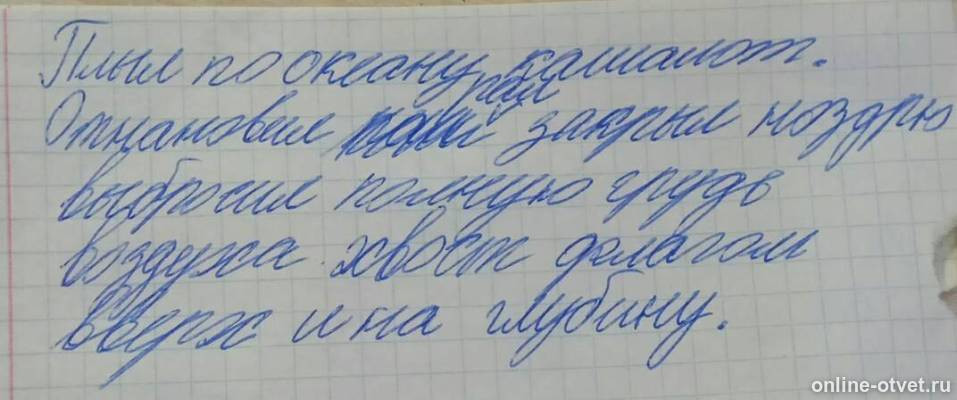 Плыл по океану кашалот.
рял
Отнановил закрыл ноздрю
выбросил полную грудь
воздуха хвост флагом
вверх и на глубину.
online-otvet.ru